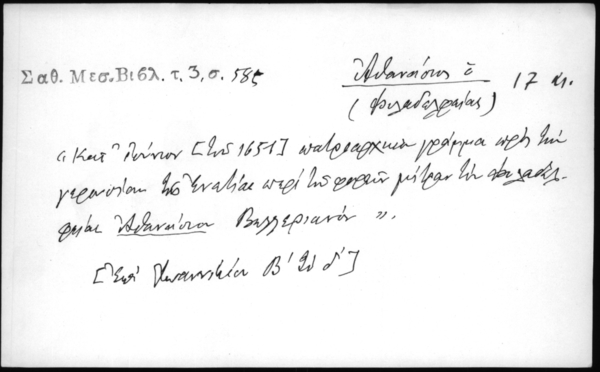 Σαθ. Μεσ. Βιβλ. τ. 3, σ. 585
Ἀθανάσιος ὁ
(Φιλαδελφείας)
17 αι.
"Κατ' Ἰούνιον [τοῦ 1651] πατριαρχικὸν γράμμα πρὸς τὴν
γερουσίαν τῆς Ἐνετίας περὶ τοῦ φορεῖν μίτραν τὸν Φιλαδελ-
φείας Ἀθανάσιον Βαλλεριανόν".
[Ἐπὶ Ἰωαννικίου Β' τὸ δ']